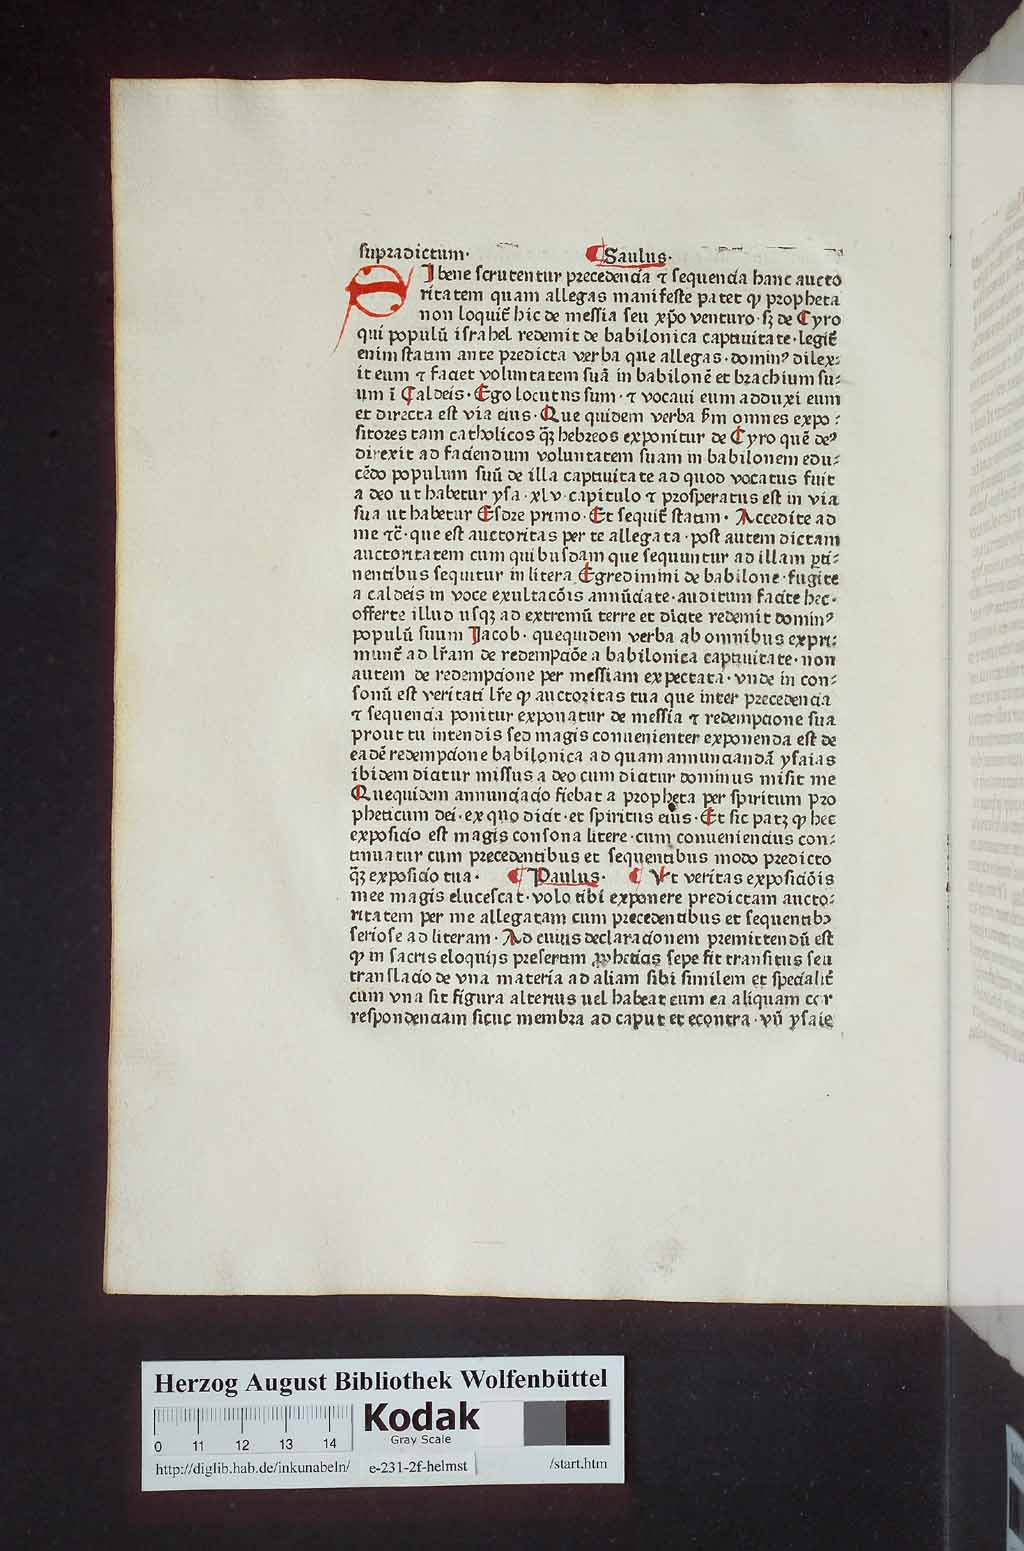 supradictum· ¶ Saulus·
SI bene scrutentur precedencia ⁊ sequencia hanc aucto
ritatem quam allegas manifeste patet ꝙ propheta
non loquit᷑ hic de messia seu xp̄o venturo·sꝫ de Cyro
qui populū israhel redemit de babilonica captiuitate·legit᷑
enim statim ante predicta verba que allegas·domin⁹ dilex⸗
it eum ⁊ faciet voluntatem suā in babilonē et brachium su⸗
um ī Caldeis·Ego locutus sum·⁊ vocaui eum adduxi eum
et directa est via eius·Que quidem verba ẜm omnes expo⸗
sitores tam catholicos qꝫ̄ hebreos exponitur de Cyro quē de⁹
direxit ad faciendum voluntatem suam in babilonem edu⸗
cēdo populum suū de illa captiuitate ad quod vocatus fuit
a deo ut habetur ysa·xlv·capitulo ⁊ prosperatus est in via
sua ut habetur Esdre primo·Et sequit᷑ statim·Accedite ad
me ⁊c̄·que est auctoritas per te allegata·post autem dictam
auctoritatem cum quibusdam que sequuntur ad illam ꝑti⸗
nentibus sequitur in litera Egredimini de babilone·fugite
a caldeis in voce exultacōis annūciate·auditum facite hec·
offerte illud usqꝫ ad extremū terre et dicite redemit domin⁹
populū suum Jacob·quequidem verba ab omnibus expri⸗
munt᷑ ad lr̄am de redempciōe a babilonica captiuitate·non
autem de redempcione per messiam expectata·vnde in con⸗
sonū est veritati lr̄e ꝙ auctoritas tua que inter precedencia
⁊ sequencia ponitur exponatur de messia ⁊ redempcione sua
prout tu intendis sed magis conuenienter exponenda est de
eadē redempcione babilonica ad quam annunciandā ysaias
ibidem dicitur missus a deo cum dicitur dominus misit me
Quequidem annunciacio fiebat a propheta per spiritum pro
pheticum dei·ex quo dicit·et spiritus eius·Et sic patꝫ ꝙ hec
exposicio est magis consona litere·cum conueniencius con⸗
tinuatur cum precedentibus et sequentibus modo predicto
qꝫ̄ exposicio tua· ¶ Paulus· ¶ Vt veritas exposiciōis
mee magis elucescat·volo tibi exponere predictam aucto⸗
ritatem per me allegatam cum precedentibus et sequentibꝫ
seriose ad literam·Ad cuius declaracionem premittendū est
ꝙ in sacris eloquijs presertim ꝓphetias sepe fit transitus seu
translacio de vna materia ad aliam sibi similem et specialit᷑
cum vna sit figura alterius uel habeat cum ea aliquam cor
respondenciam sicut membra ad caput et econtra·vn̄ ysaie
Herzog August Bibliothek Wolfenbüttel
0 11 12 13 14
Kodak
Gray Scale
http://diglib.hab.de/inkunabeln/ e-231-2f-helmst /start.htm